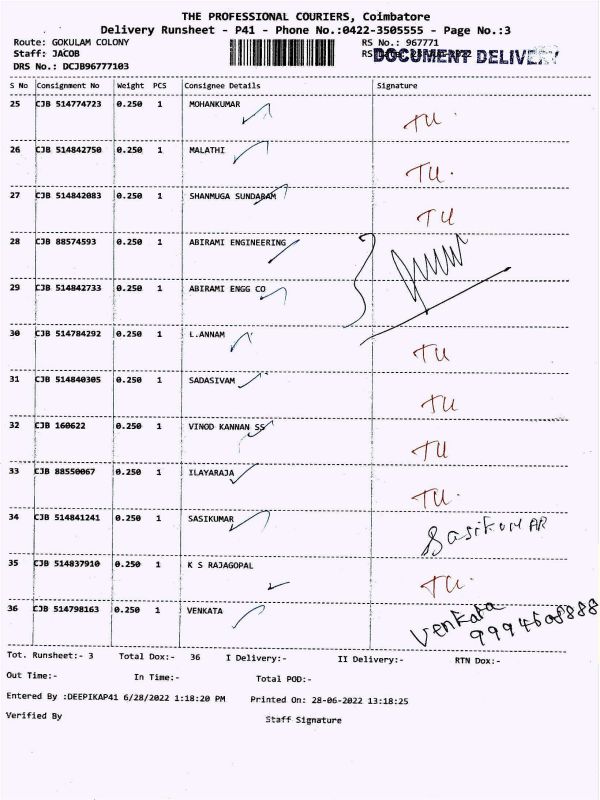 THE PROFESSIONAL COURIERS, Coimbatore
Delivery Runsheet - P41 - Phone No.:0422-3505555 - Page No.:3
Route: GOKULAM COLONY RS No.: 967771
Staff: JACOB DOCUMENT DELIVERY
DRS No.: DCJB96777103
S No Consignment No Weight PCS Consignee Details Signature
25 CJB 514774723 0.250 1 MOHANKUMAR TU.
26 CJB 514842750 0.250 1 MALATHI TU.
27 CJB 514842083 0.250 1 SHANMUGA SUNDARAM TU
28 CJB 88574593 0.250 1 ABIRAMI ENGINEERING
29 CJB 514842733 0.250 1 ABIRAMI ENGG CO
30 CJB 514784292 0.250 1 L.ANNAM TU
31 CJB 514840305 0.250 1 SADASIVAM TU
32 CJB 160622 0.250 1 VINOD KANNAN SS TU
33 CJB 88550067 0.250 1 ILAYARAJA TU.
34 CJB 514841241 0.250 1 SASIKUMAR SasikumAR
35 CJB 514837910 0.250 1 K S RAJAGOPAL TU.
36 CJB 514798163 0.250 1 VENKATA Venkata
9994608888
Tot. Runsheet:- 3 Total Dox:- 36 I Delivery:- II Delivery:- RTN Dox:-
Out Time:- In Time:- Total POD:-
Entered By :DEEPIKAP41 6/28/2022 1:18:20 PM Printed On: 28-06-2022 13:18:25
Verified By Staff Signature